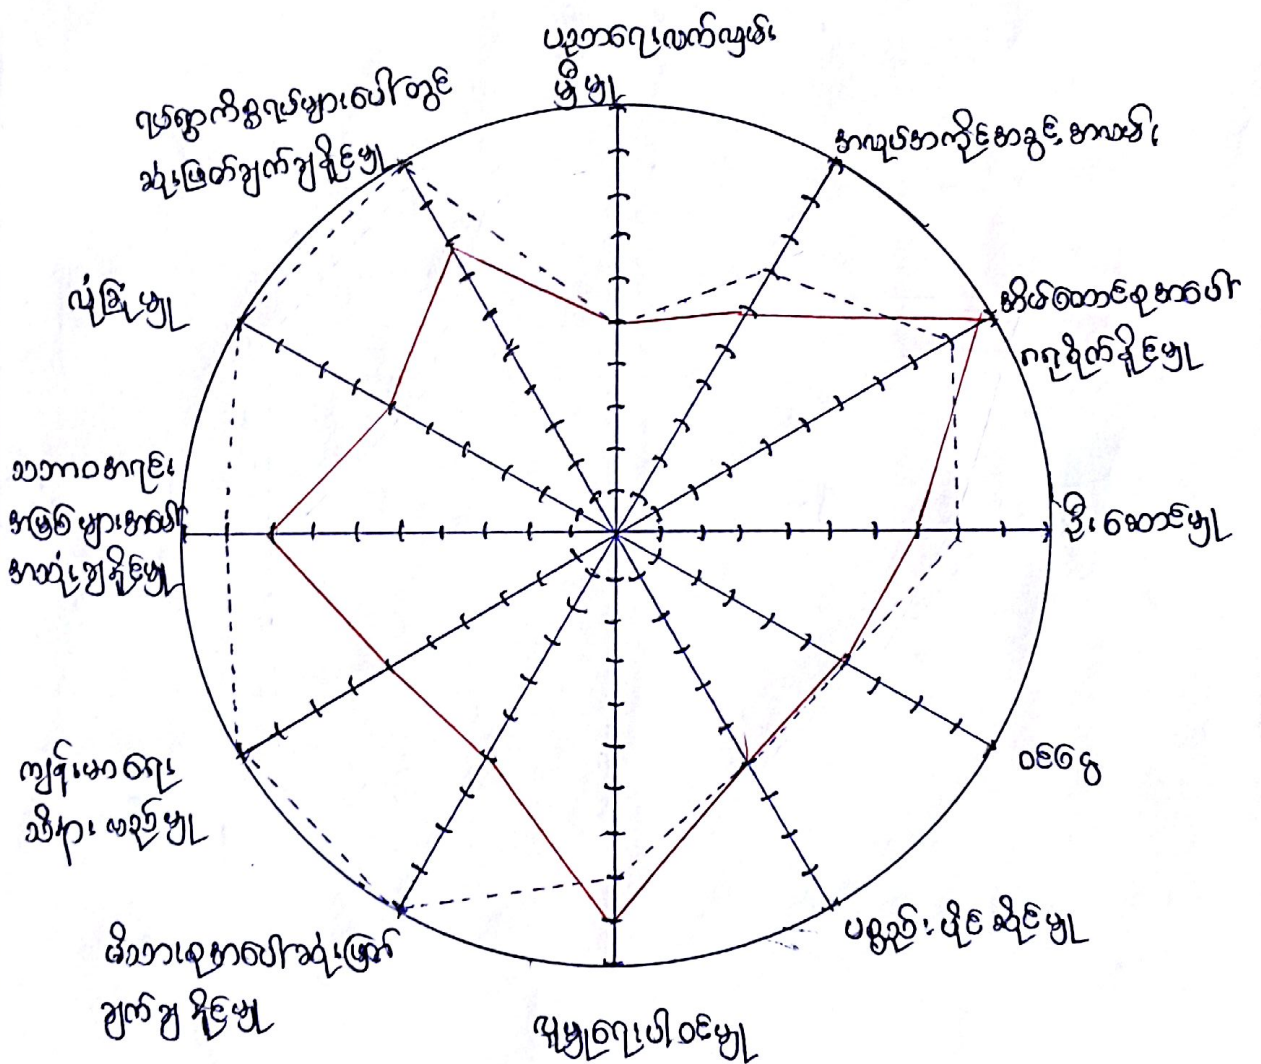 ပညာရေးလက်လှမ်း
မှီမှု
အလုပ်အကိုင်အခွင့်အလမ်း
အိမ်ထောင်စုအပေါ်
ဂရုစိုက်နိုင်မှု
ဦးဆောင်မှု
ဝင်ငွေ
ပစ္စည်းပိုင်ဆိုင်မှု
လူမှုရေးပါဝင်မှု
မိသားစုအပေါ်ဆုံးဖြတ်
ချက်ချနိုင်မှု
ကျန်းမာရေး
သိနားလည်မှု
သဘာဝအရင်း
အမြစ်များအပေါ်
အသုံးချနိုင်မှု
လုံခြုံမှု
ရပ်ရွာကိစ္စရပ်များပေါ်တွင်
ဆုံးဖြတ်ချက်ချနိုင်မှု